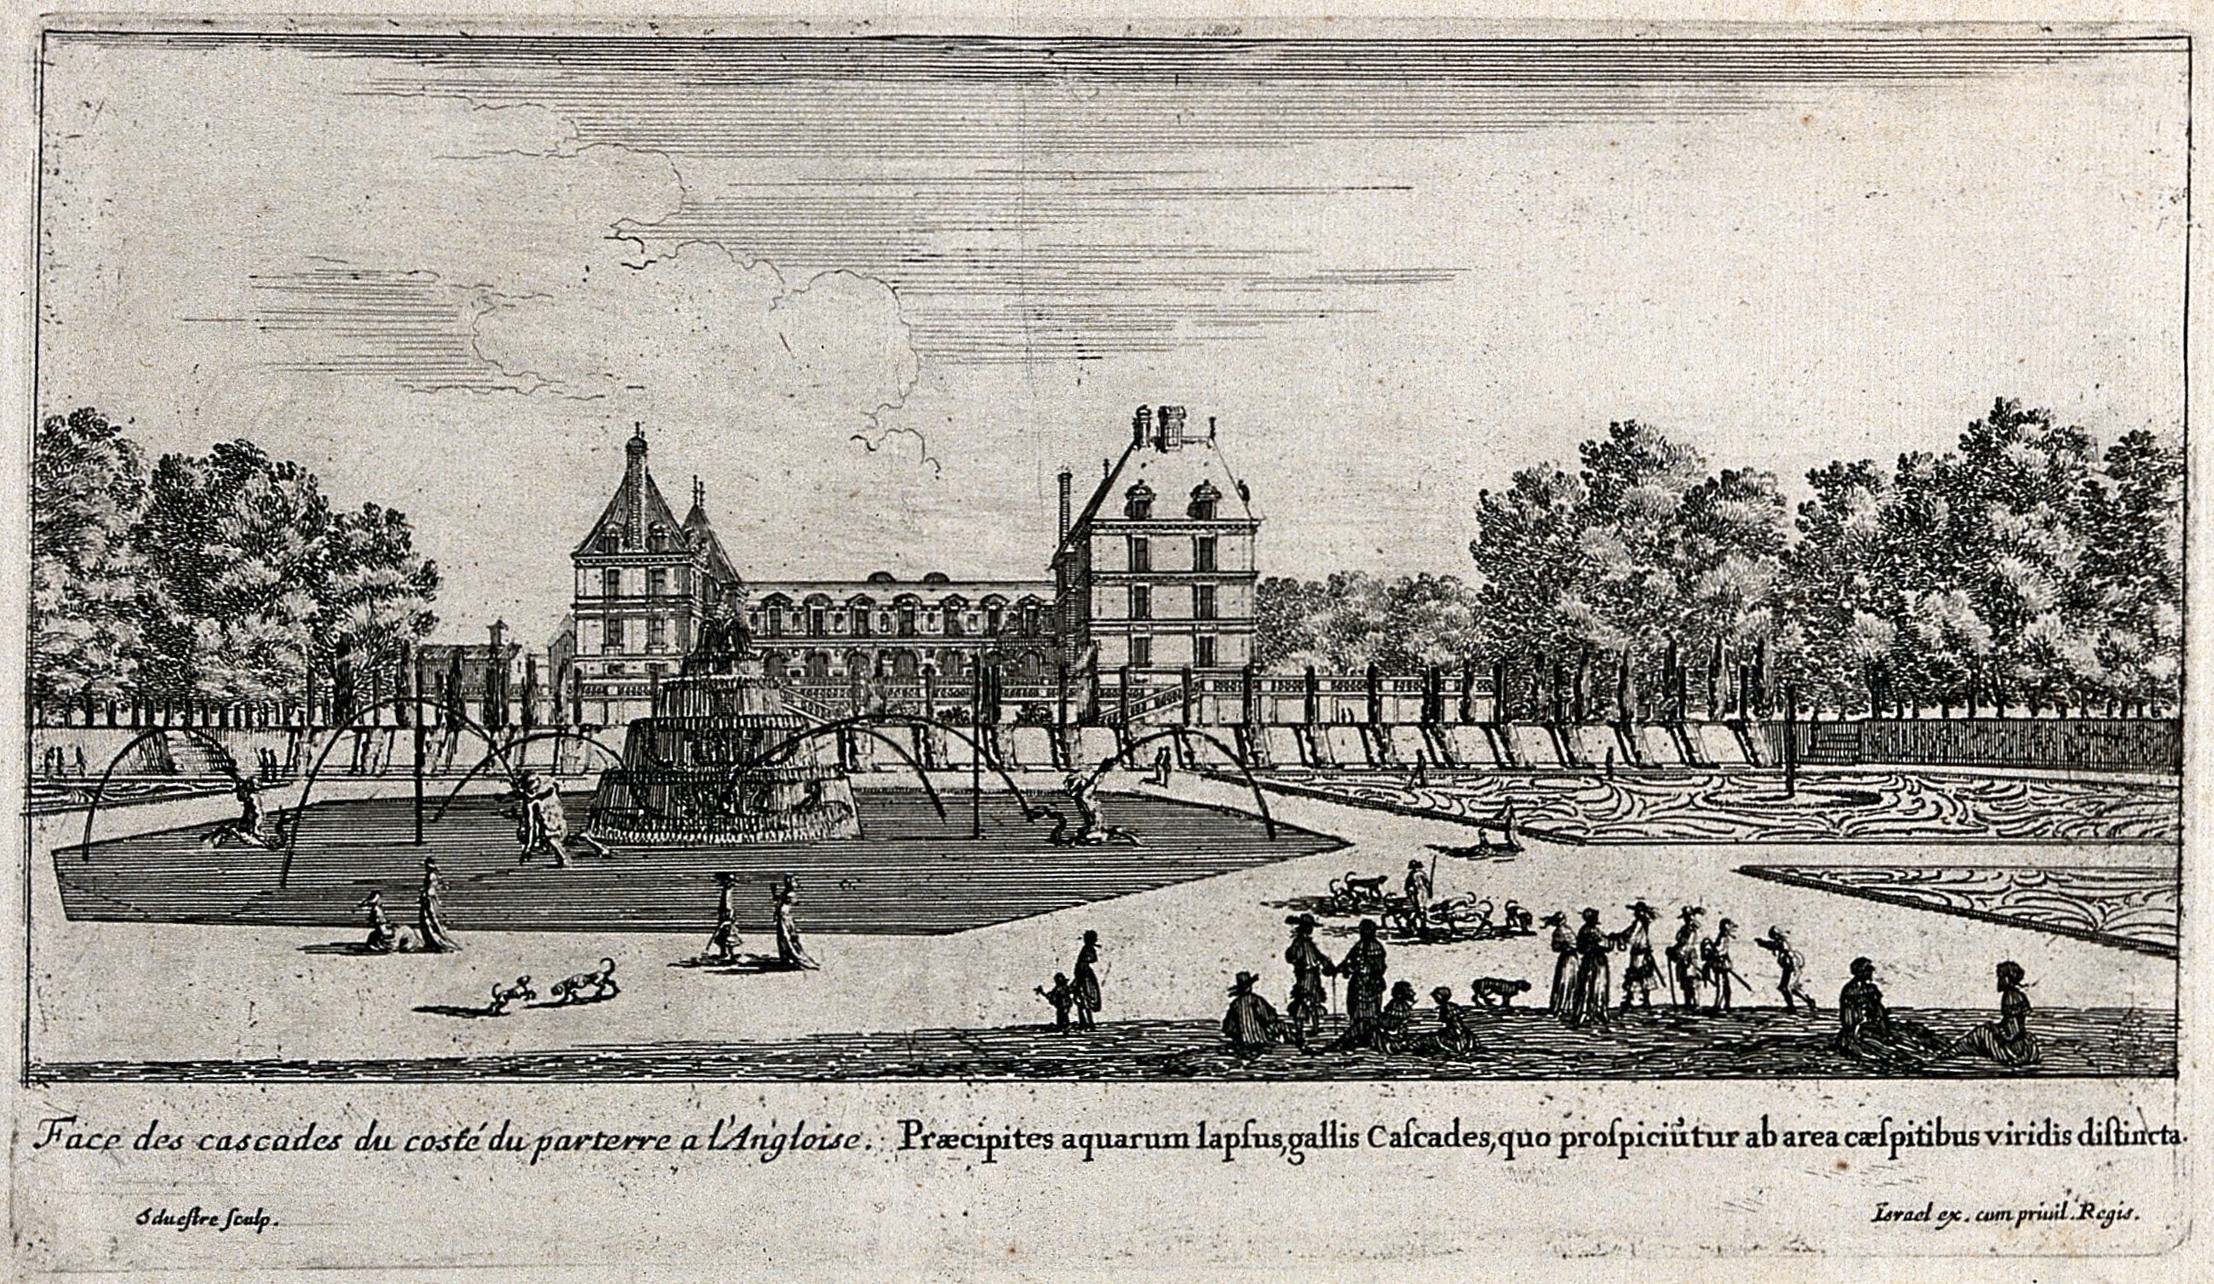 Face des cascades du costé du parterre a l'Angloise. Præcipites aquarum lapſus, gallis Caſcades, quo proſpiciūtur ab area cæſpitibus viridis diſtincta.
Sylueſtre ſculp.
Israel ex. cum priuil. Regis.